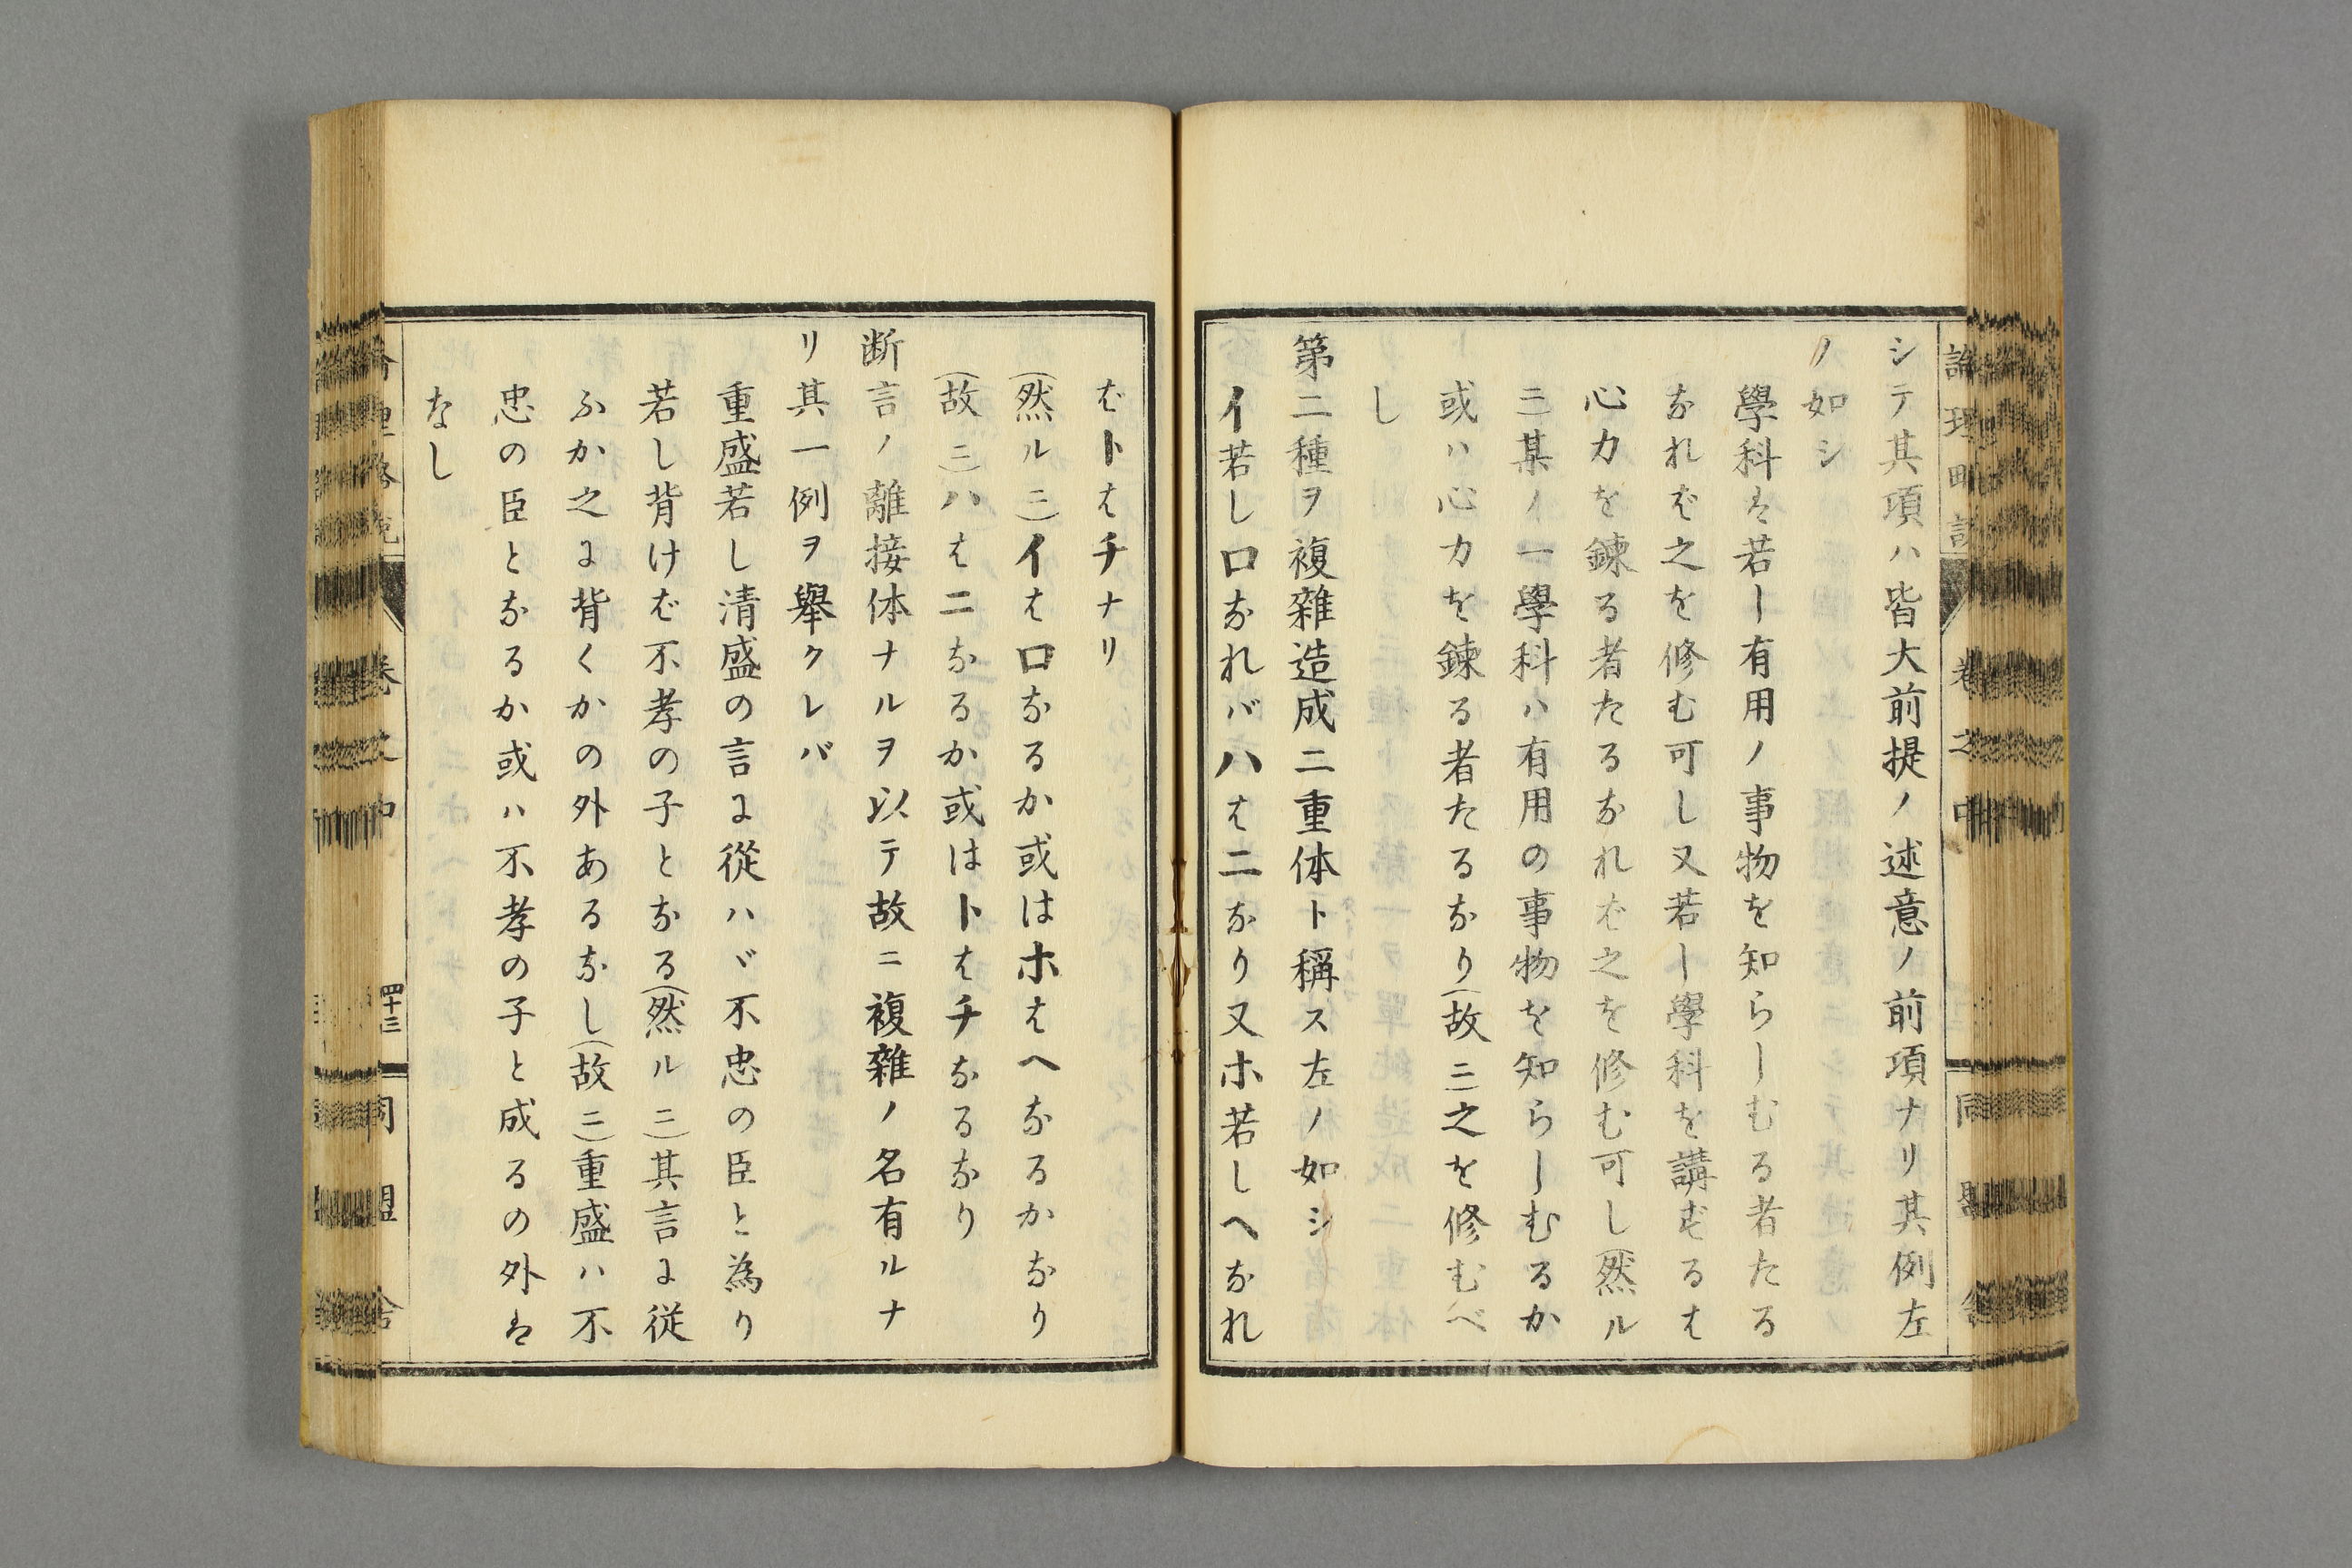 シテ其項ハ皆大前提ノ述意ノ前項ナリ其例左
ノ如シ
學科は若し有用ノ事物を知らしむる者たる
なれば之を修む可し又若し學科を講ずるは
心力を錬る者たるなれば之を修む可し(然ル
ニ)某ノ一學科ハ有用の事物を知らしむるか
或ハ心力を錬る者たるなり(故ニ)之を修むべ
し
第二種ヲ複雜造成二重体ト稱ス左ノ如シ
イ若しロなれバハは二なり又ホ若しヘなれ
ばトはチナリ
(然ルニ)イはロなるか或はホはヘなるかなり
(故ニ)ハは二なるか或はトはチなるなり
断言ノ離接体ナルヲ以テ故ニ複雜ノ名有ルナ
リ其一例ヲ舉クレバ
重盛若し清盛の言に從ハヾ不忠の臣と為り
若し背けば不孝の子となる(然ルニ)其言に従
ふか之に背くかの外あるなし(故ニ)重盛ハ不
忠の臣となるか或ハ不孝の子と成るの外は
なし
卷之中
四十三
同盟舍